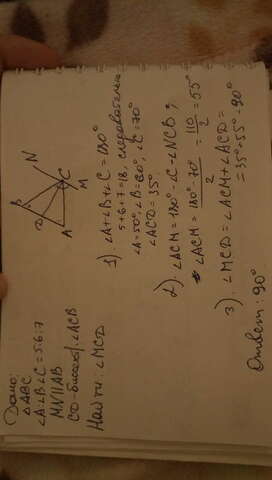 Дано:
△ABC
∠A:∠B:∠C=5:6:7
MN||AB
CD-биссект. ∠ACB
Найти: ∠MCD
B
N
D
C
A
M
1) ∠A+∠B+∠C=180°
5+6+7=18, следовательно
∠A=50°, ∠B=60°, ∠C=70°
∠ACD=35°
2) ∠ACM=180°-∠C-∠NCB;
∠ACM=180°-70°/2=110/2=55°
3) ∠MCD=∠ACM+∠ACD=
=35°+55°=90°
Ответ: 90°